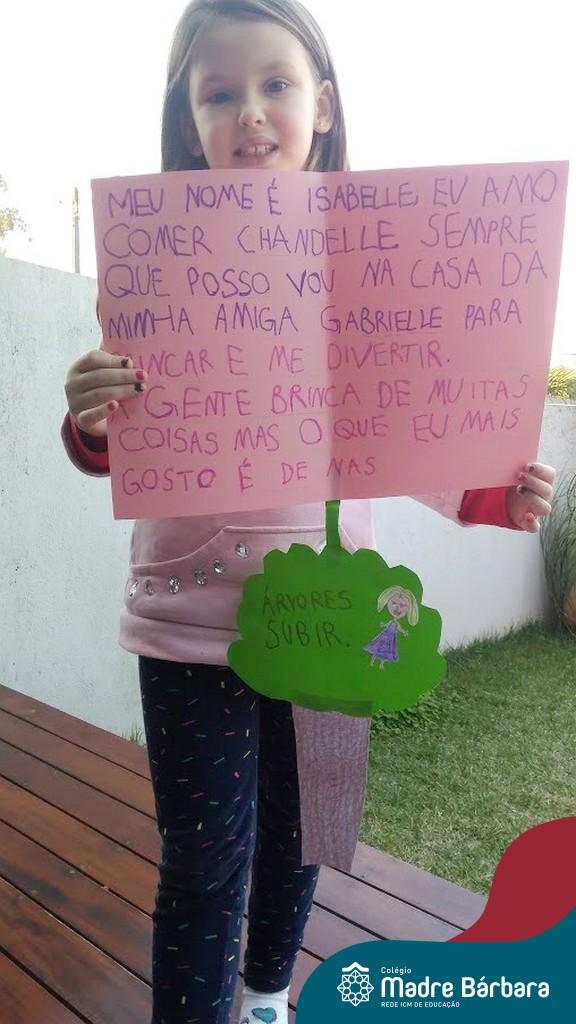 MEU NOME É ISABELLE, EU AMO
COMER CHANDELLE SEMPRE
QUE POSSO VOU NA CASA DA
MINHA AMIGA GABRIELLE PARA
INCAR E ME DIVERTIR.
GENTE BRINCA DE MUITAS
COISAS MAS O QUE EU MAIS
GOSTO É DE NAS
ÁRVORES
SUBIR.
Colégio
Madre Bárbara
REDE ICM DE EDUCAÇÃO